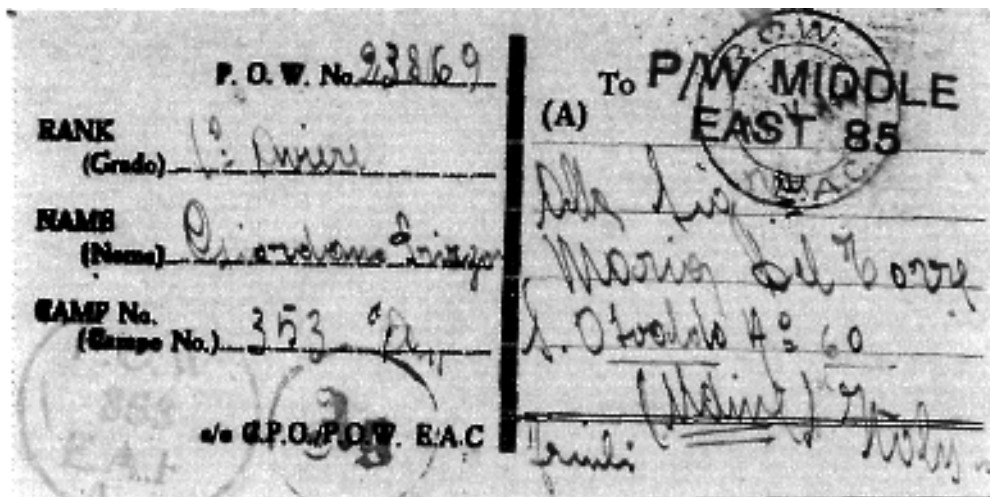 P. O. W. No. 23869
RANK
(Grado) 1º Aviere
NAME
(Nome) Giordano
CAMP No.
(Campo No.) 353 "A"
c/o G.P.O./P.O.W. E.A.C
353
E.A.
33
To P/W MIDDLE
EAST 85
(A)
P.O.W.
E.A.C.
Alla Sig.
Maria Del Torre
S. Osvaldo Nº 60
(Udine) Italy
Friuli